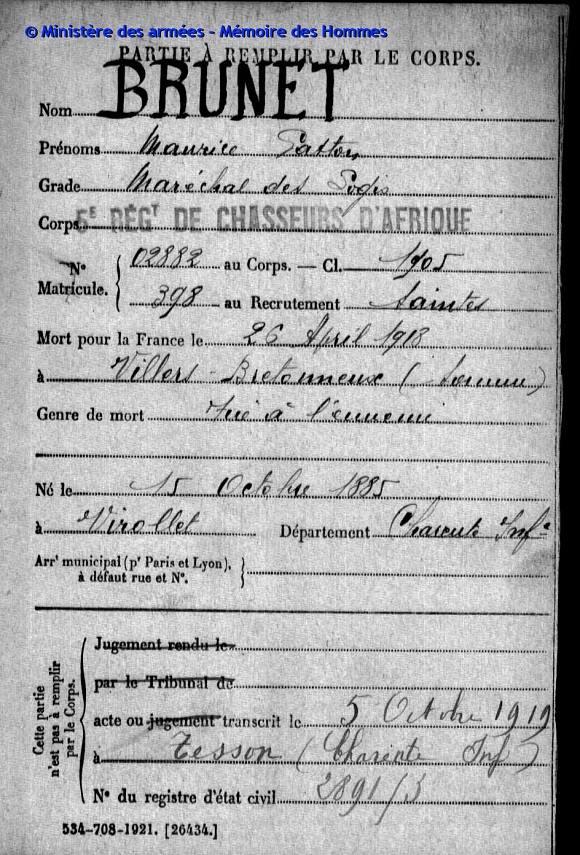 © Ministère des armées - Mémoire des Hommes
PARTIE À REMPLIR PAR LE CORPS.
Nom BRUNET
Prénoms Maurice Gaston
Grade Maréchal des Logis
Corps 5E RÉGT DE CHASSEURS D'AFRIQUE
N° 02882 au Corps. — Cl. 1905
Matricule. 398 au Recrutement Saintes
Mort pour la France le 26 April 1918
à Villers-Bretonneux (Somme)
Genre de mort Tué à l'ennemi
Né le 15 Octobre 1885
à Virollet Département Charente Infre
Arrt municipal (pr Paris et Lyon),
à défaut rue et N°.
Cette partie
n'est pas à remplir
par le Corps.
Jugement rendu le
par le Tribunal de
acte ou jugement transcrit le 5 Octobre 1919
à Tesson (Charente Inf)
N° du registre d'état civil 2891/3
534-708-1921. [26434.]